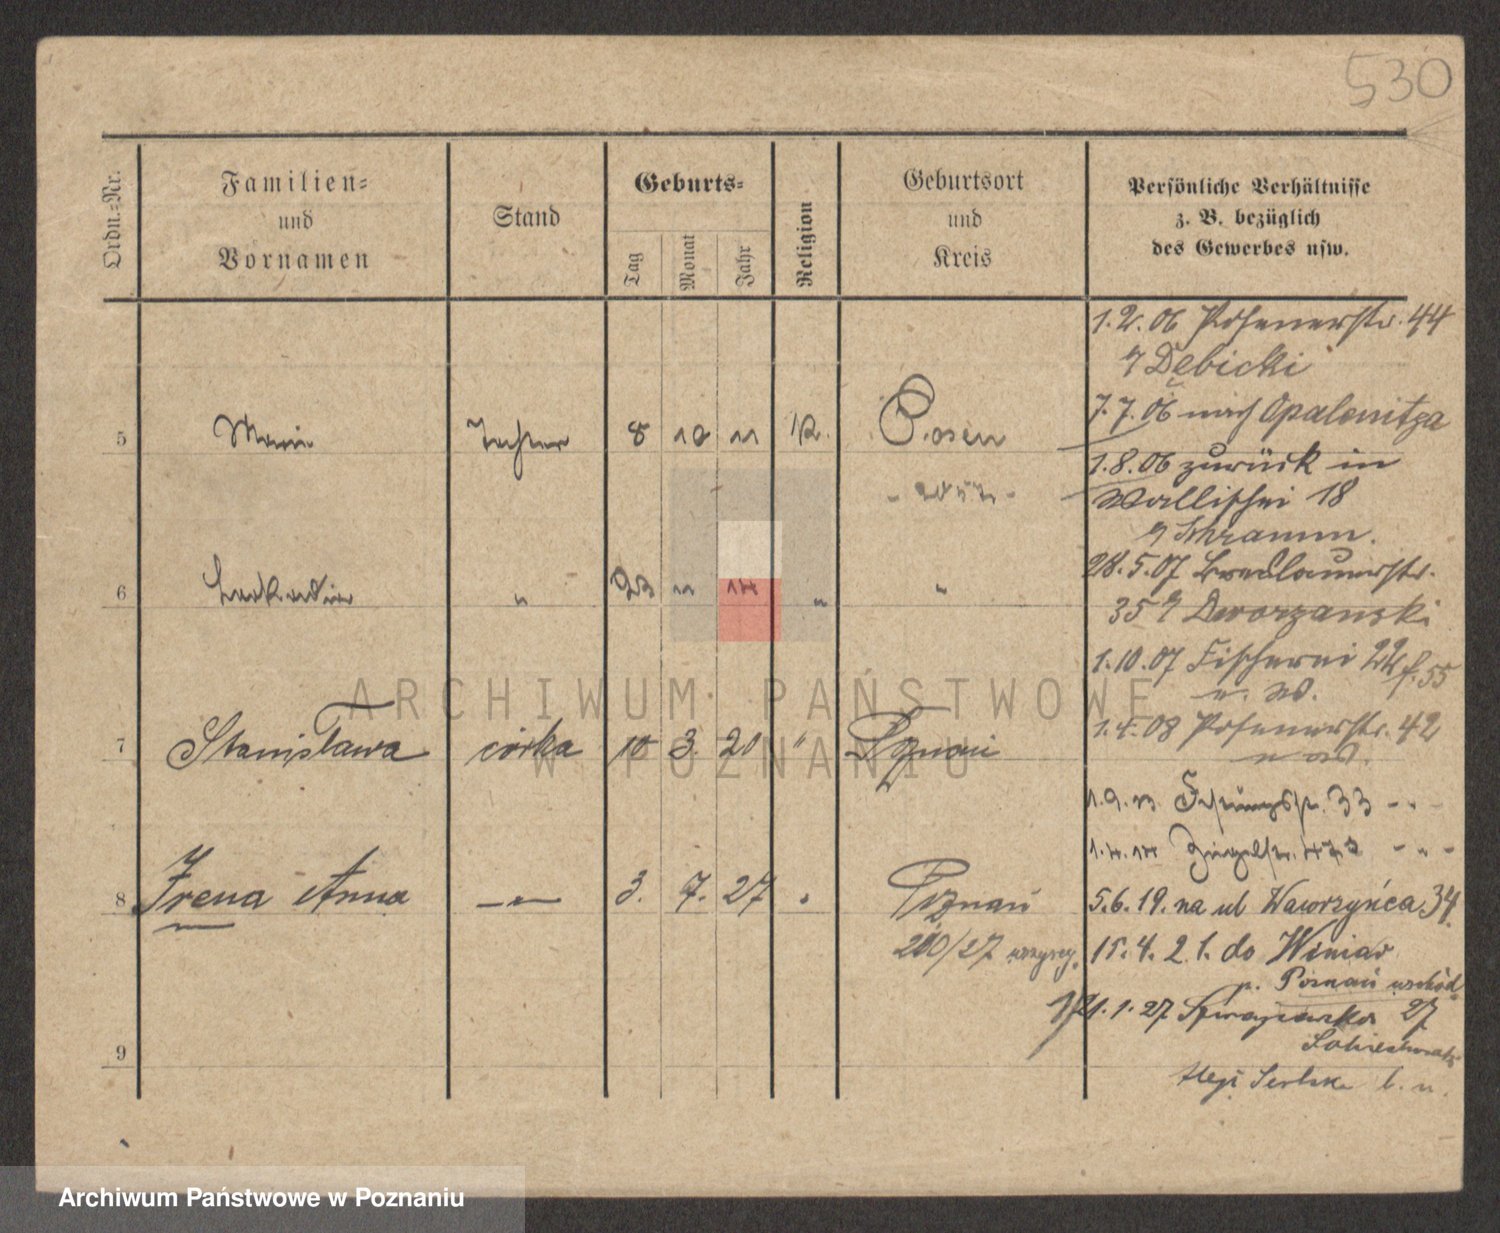 530
Ordn.-Nr.
Familien-
und
Vornamen
Stand
Geburts-
Tag
Monat
Jahr
Religion
Geburtsort
und
Kreis
Persönliche Verhältnisse
z. B. bezüglich
des Gewerbes usw.
1.2.06 Posenerstr. 44
Dębicki
7.7.06 nach Opalenitza
5 Maria Tochter 8 10 11 K. Posen
1.8.06 zurück in
Wallischei 18
Schramm.
28.5.07 Breslauerstr.
6 Leokadia " 23 11 14 " "
35 Dworzanski
1.10.07 Fischerei 22 f. 55
1.4.08 Posenerstr. 42
7 Stanisława córka 10 3. 20 " Poznań
1.9.13 33 - " -
1.4.14 - " -
8 Irena Anna —"— 3. 7. 27 " Poznań
5.6.19. na ul Wawrzyńca 34
200/27
15.4.21. do Winiar
p. Poznań wschód
21.1.27 27
9
ARCHIWUM PAŃSTWOWE
W POZNANIU
Archiwum Państwowe w Poznaniu